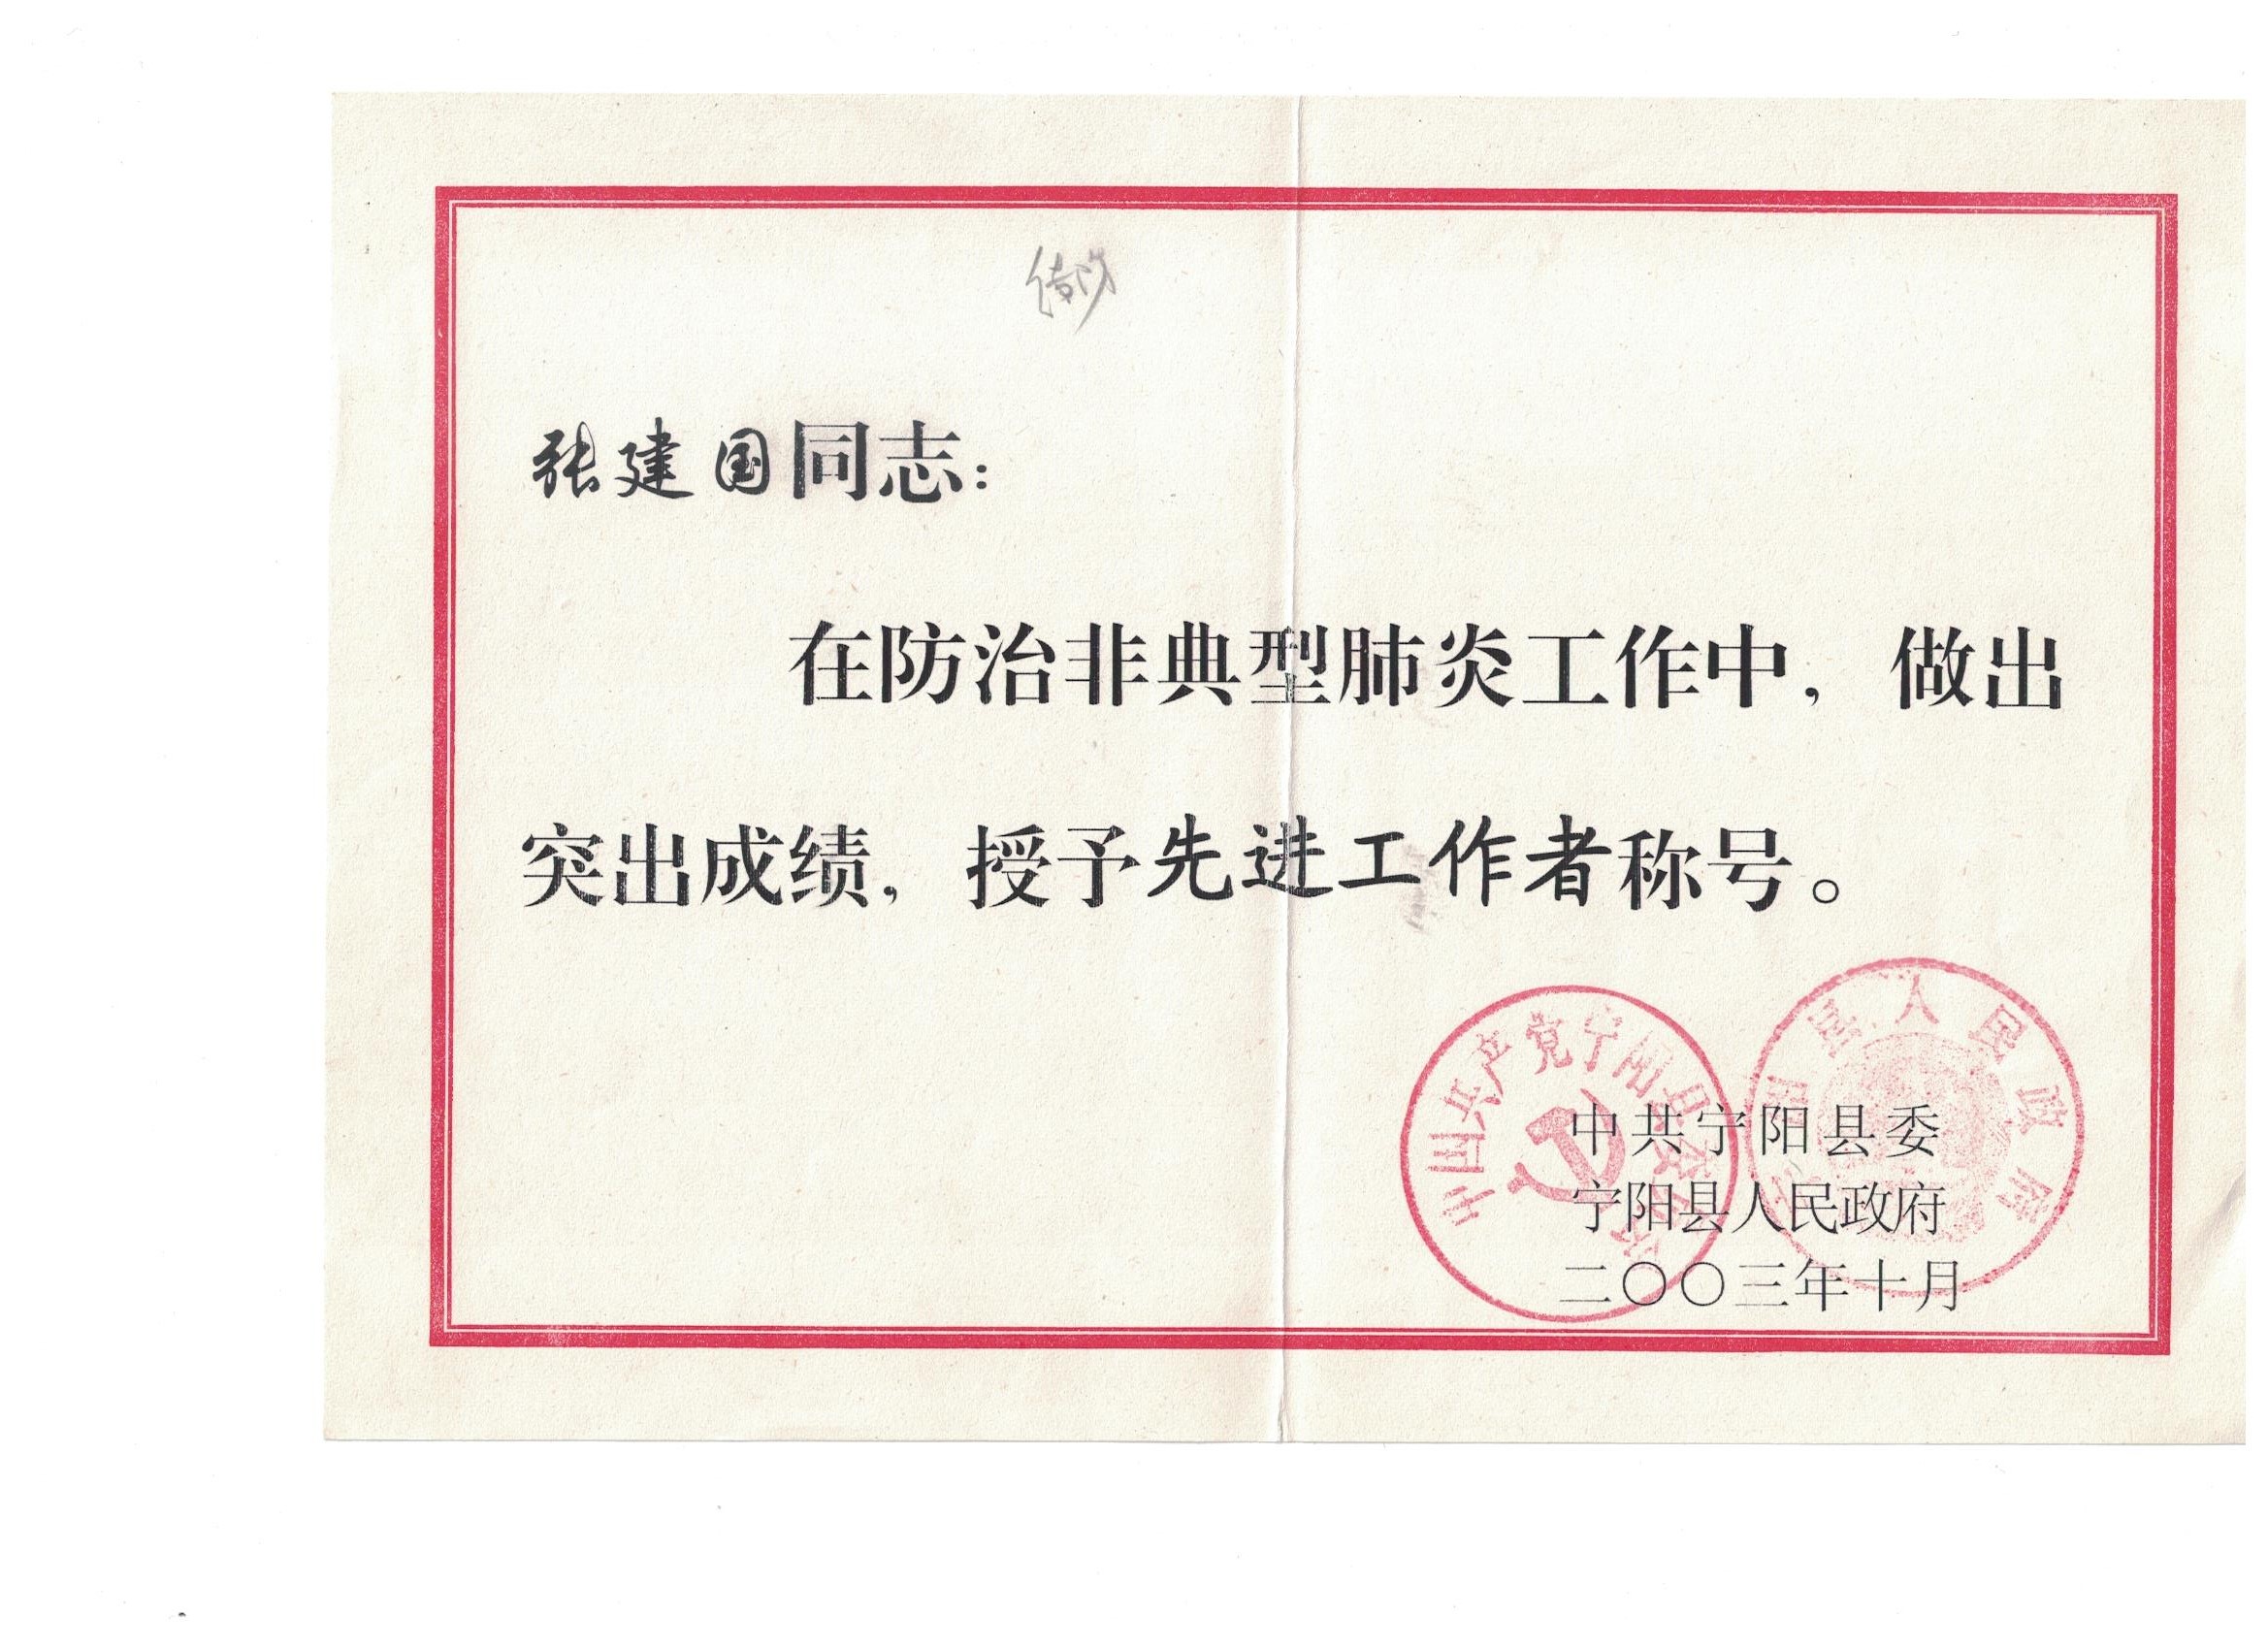 张建国同志：
在防治非典型肺炎工作中，做出
突出成绩，授予先进工作者称号。
中国共产党宁阳县委员会
宁阳县人民政府
中共宁阳县委
宁阳县人民政府
二〇〇三年十月